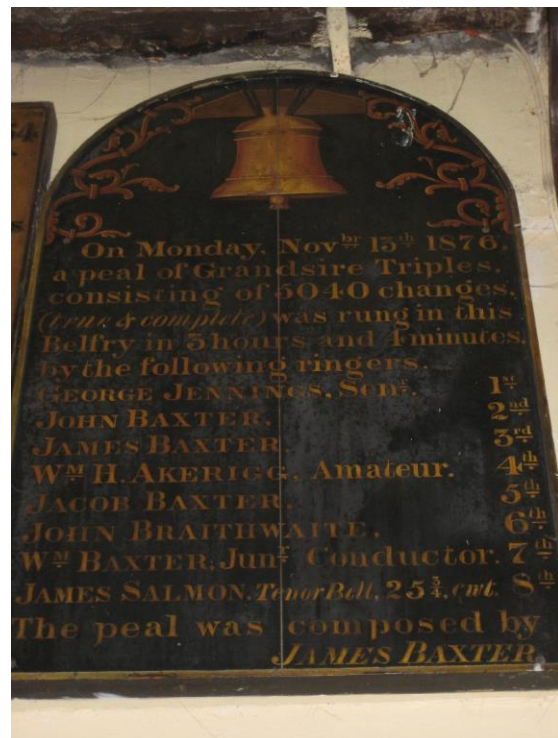 On Monday, Novbr 13th 1876,
a peal of Grandsire Triples,
consisting of 5040 changes,
(true & complete) was rung in this
Belfry in 3 hours and 4 minutes,
by the following ringers.
GEORGE JENNINGS, Senr. 1st
JOHN BAXTER, 2nd
JAMES BAXTER, 3rd
WM H. AKERIGG, Amateur. 4th
JACOB BAXTER 5th
JOHN BRAITHWAITE, 6th
WM BAXTER, Junr Conductor. 7th
JAMES SALMON, Tenor Bell, 25 3/4, cwt. 8th
The peal was composed by
JAMES BAXTER